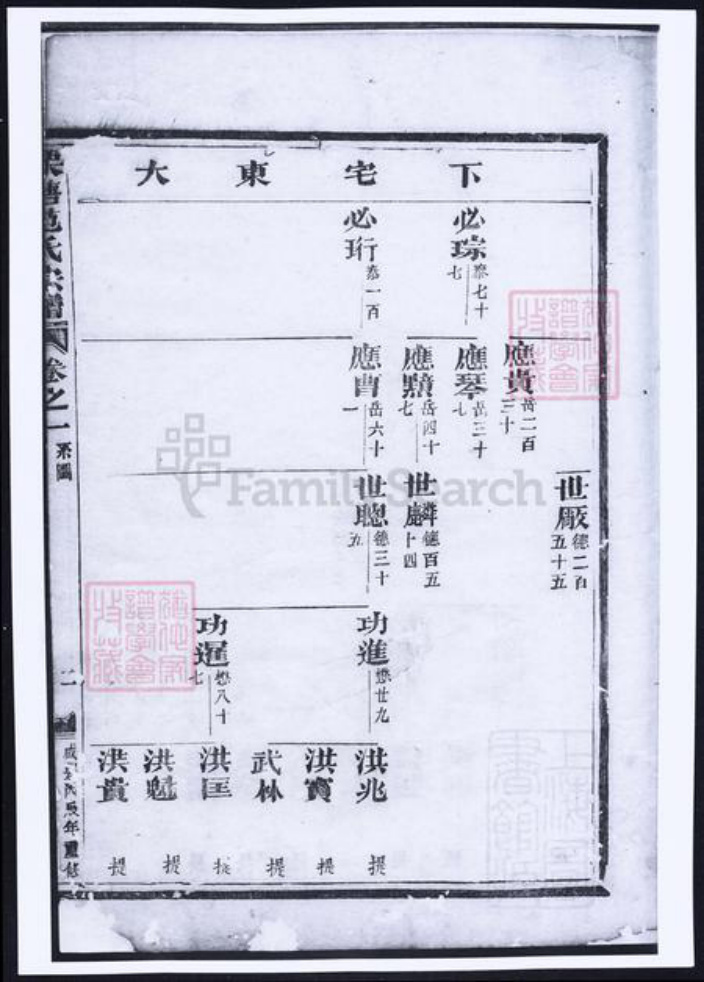 下宅東大
必琮 泰七十七
必珩 泰一百
應貴 岳二百三十
應琴 岳三十七
應黰 岳四十七
應曹 岳六十一
世厰 德二百五十五
世麟 德百五十四
世聰 德三十五
功進 懋廿九
功暹 懋八十七
洪兆 提
洪寳 提
武林 提
洪匡 提
洪魁 提
洪貴 提
范氏宗譜
卷之一 系圖
二
年重修
FamilySearch
譜學會
收藏
譜學會
收藏
上海圖書館藏